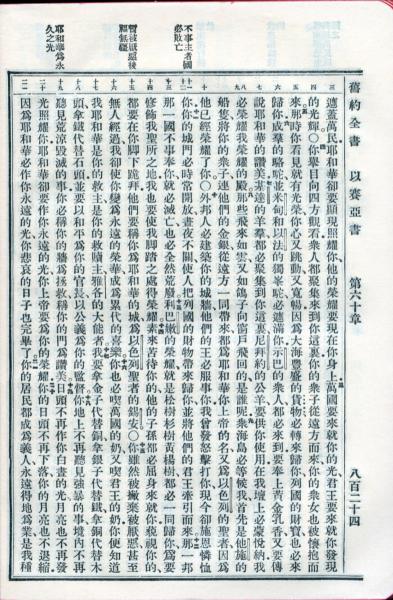 舊約全書 以賽亞書 第六十章 八百二十四
不事主者國
必敗亡
耶和華爲永
久之光
遮蓋萬民耶和華却要顯現照耀你他的榮耀要現在你身上萬國要來就你的光君王要來就你發現
的光輝○你舉目向四方觀看衆人都聚集來到你這裏你的衆子從遠方而來你的衆女也被懷抱而
來那時你看見就有光榮你心又跳動又寬暢因爲大海豐盛的貨物必轉來歸你列國的財寶也必來
歸你成羣的駱駝並米甸和以法的獨峯駝必遮滿你示巴的衆人都必來到要奉上黃金乳香又要傳
說耶和華的讚美基達的羊羣都必聚集到你這裏尼拜約的公羊要供你使用在我壇上必蒙悅納我
必榮耀我榮耀的殿那些飛來如雲又如鴿子向窗戶飛回的是誰呢衆海島必等候我首先是他施的
船隻將你的衆子連他們的金銀從遠方一同帶來都爲耶和華你上帝的名又爲以色列的聖者因爲
他已經榮耀了你○外邦人必建築你的城牆他們的王必服事你我曾發怒擊打你現今却施恩憐恤
你你的城門必時常開放晝夜不關使人把列國的財物帶來歸你並將他們的君王牽引而來那一邦
那一國不事奉你就必滅亡也必全然荒廢利巴嫩的榮耀就是松樹杉樹黃楊樹都必一同歸你爲要
修飾我聖所之地我也要使我脚踏之處得榮耀素來苦待你的他的子孫都必屈身來就你藐視你的
都要在你脚下跪拜他們要稱你爲耶和華的城爲以色列聖者的錫安○你雖然被撇棄被厭惡甚至
無人經過我却使你變爲永遠的榮華成爲累代的喜樂你也必喫萬國的奶又喫君王的奶你便知道
我耶和華是你的救主是你的救贖主雅各的大能者我要拿金子代替銅拿銀子代替鐵拿銅代替木
頭拿鐵代替石頭並要以和平爲你的官長以公義爲你的監督你地上不再聽見強暴的事境內不再
聽見荒涼毀滅的事你必稱你的牆爲拯救稱你的門爲讚美日頭不再作你白晝的光月亮也不再發
光照耀你耶和華却要作你永遠的光你上帝要爲你的榮耀你的日頭不再下落你的月亮也不退縮
因爲耶和華必作你永遠的光你悲哀的日子也完畢了你的居民都成爲義人永遠得地爲業是我種